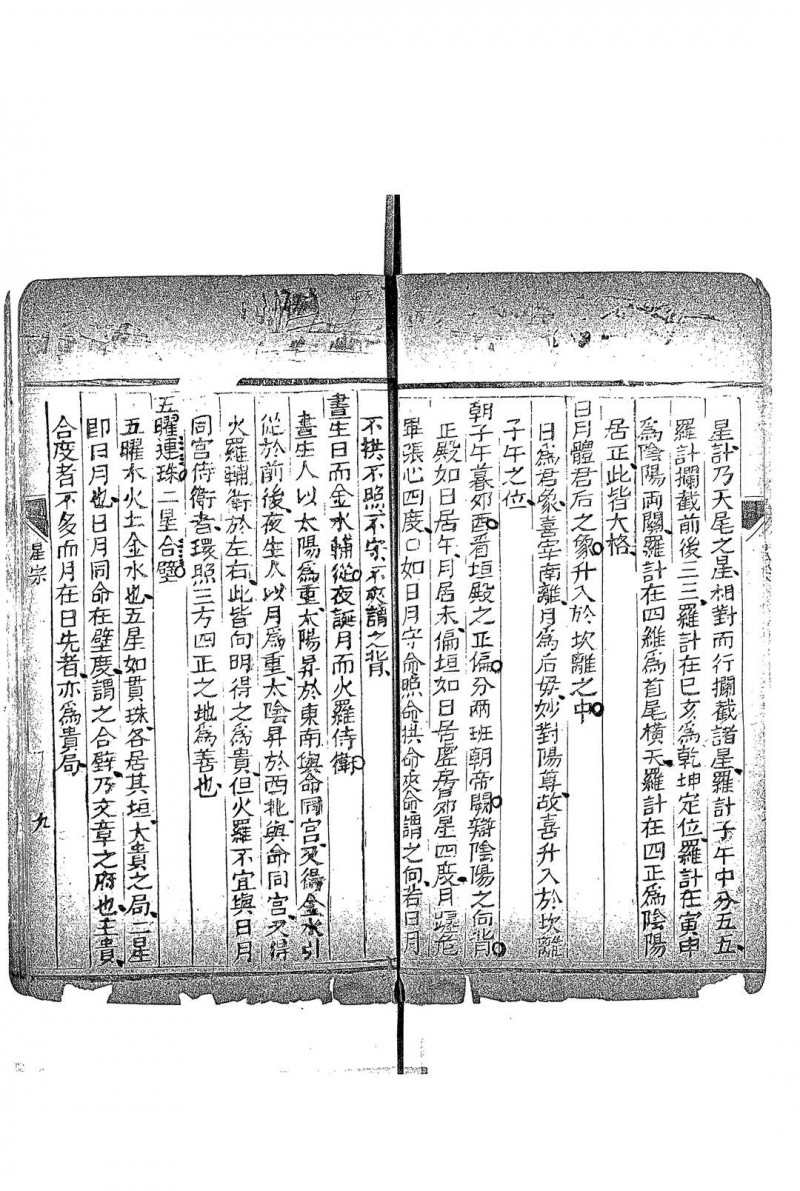 星計乃天尾之星相對而行攔截諸星羅計子午中分五五
羅計攔截前後三三羅計在巳亥為乾坤定位羅計在寅申
為陰陽両關羅計在四維為首尾橫天羅計在四正為陰陽
居正此皆大格
日月體君后之象升入於坎離之中
日為君象喜宰南離月為后毋妙對陽尊故喜升入於坎離
子午之位
朝子午暮夘酉看垣殿之正偏分两班朝帝闕辯陰陽之向背
正殿如日居午月居未偏垣如日居虛房昴星四度月居危
畢張心四度〇如日月守命照命拱命夾命謂之向若日月
不拱不照不守不夾謂之背
晝生日而金水輔從夜誕月而火羅侍衛
晝生人以太陽為重太陽昇於東南與命同宮又得金水引
從於前後夜生人以月為重太陰昇於西北與命同宮又得
火羅輔衛於左右此皆向明得之為貴但火羅不宜與日月
同宮侍衛者環照三方四正之地為善也
五曜連珠二星合璧
五曜木火土金水也五星如貫珠各居其垣大貴之局二星
即日月也日月同命在壁度謂之合璧乃文章之府也主貴
合度者不多而月在日先者亦為貴局
星宗
九